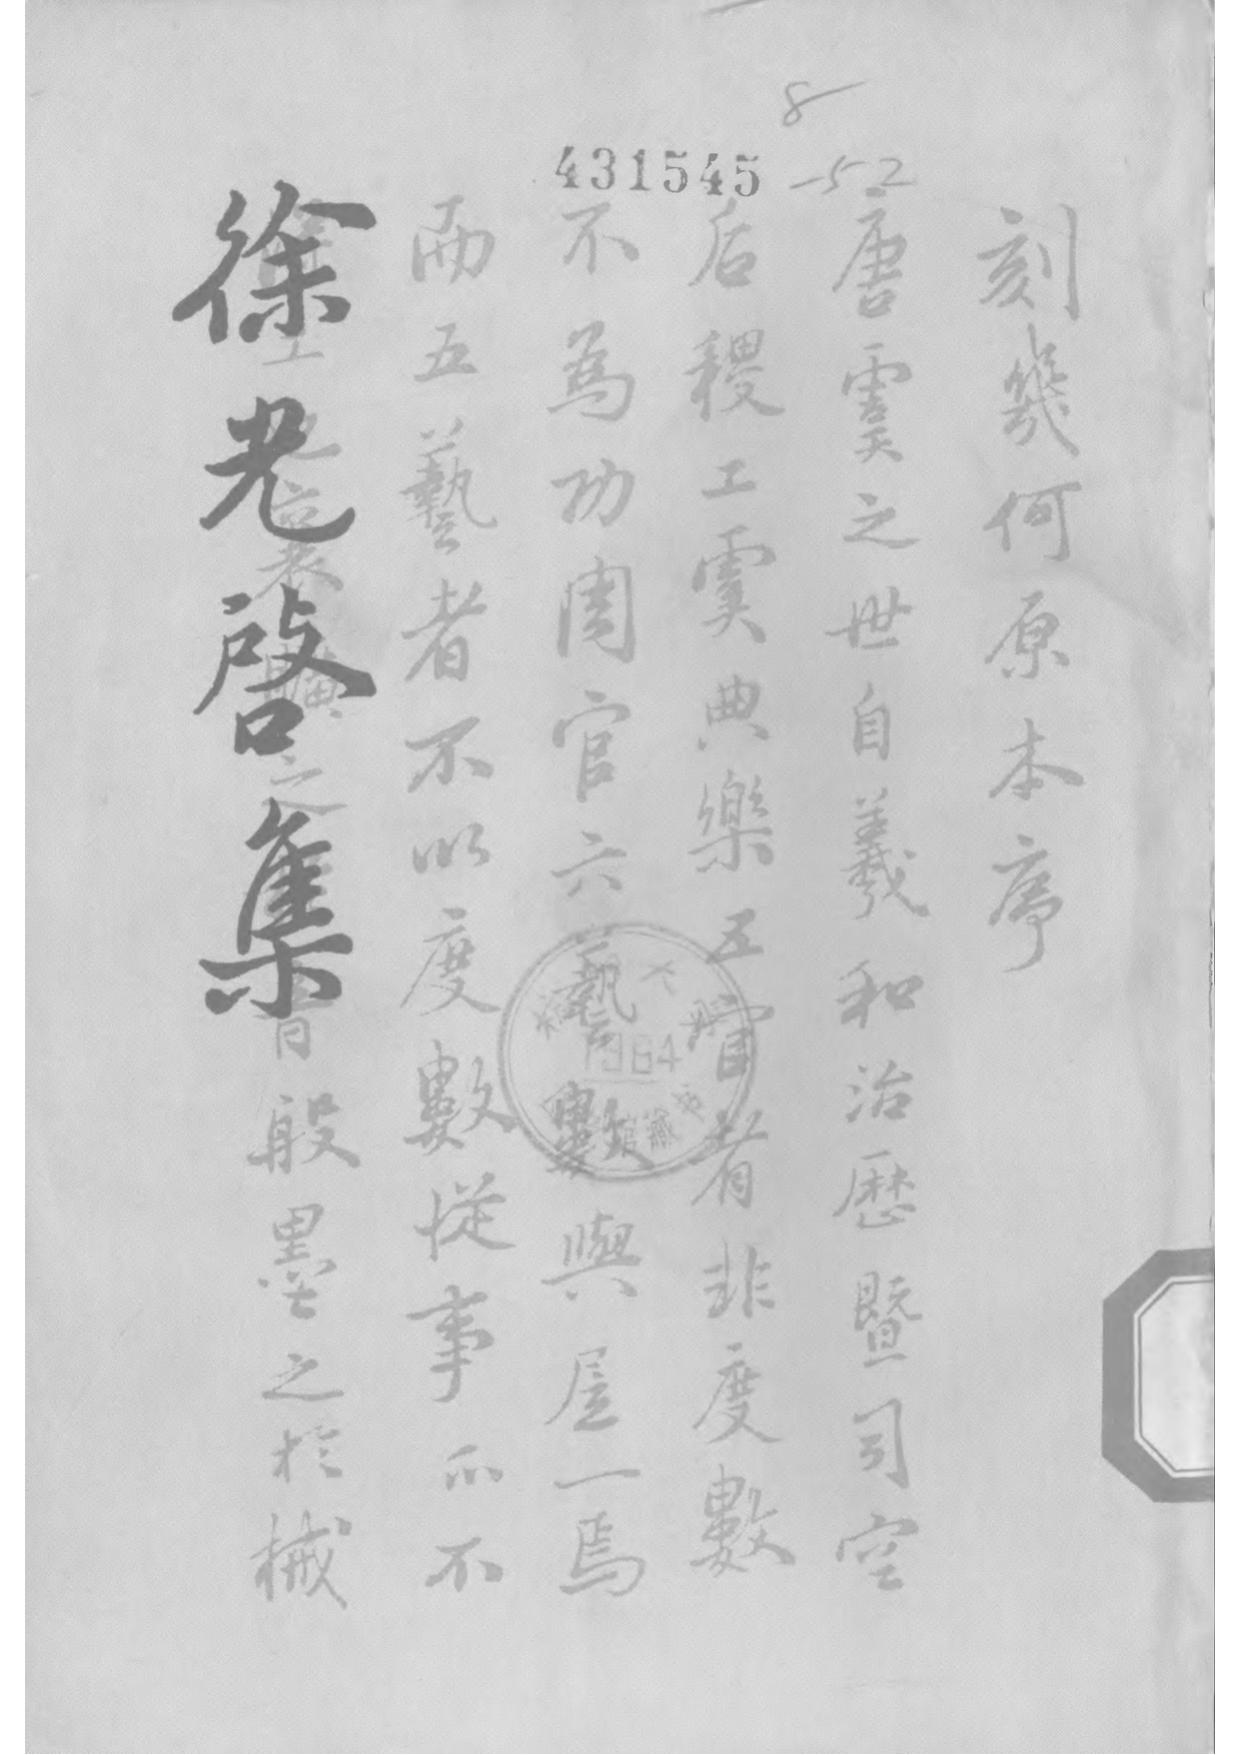 8
-52
431545
刻幾何原本序
唐虞之世自羲和治歷暨司空
后稷工虞典樂五官者非度數
不為功周官六藝數與居一焉
而五藝者不以度數從事亦不
得工也襄曠之於音般墨之於械
徐光啓集
1964
館藏書